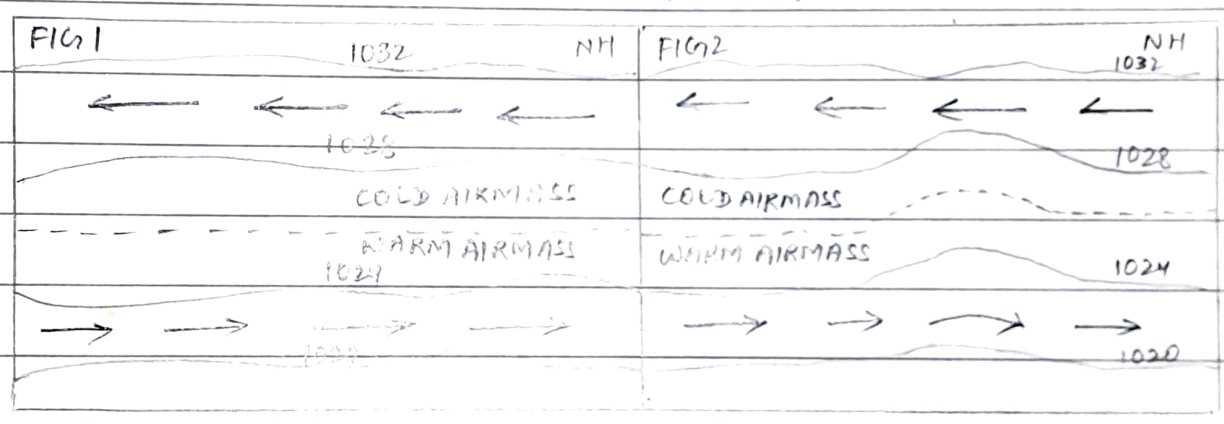 FIG 1
1032
NH
1028
COLD AIRMASS
WARM AIRMASS
1024
1020
FIG 2
NH
1032
1028
COLD AIRMASS
WARM AIRMASS
1024
1020